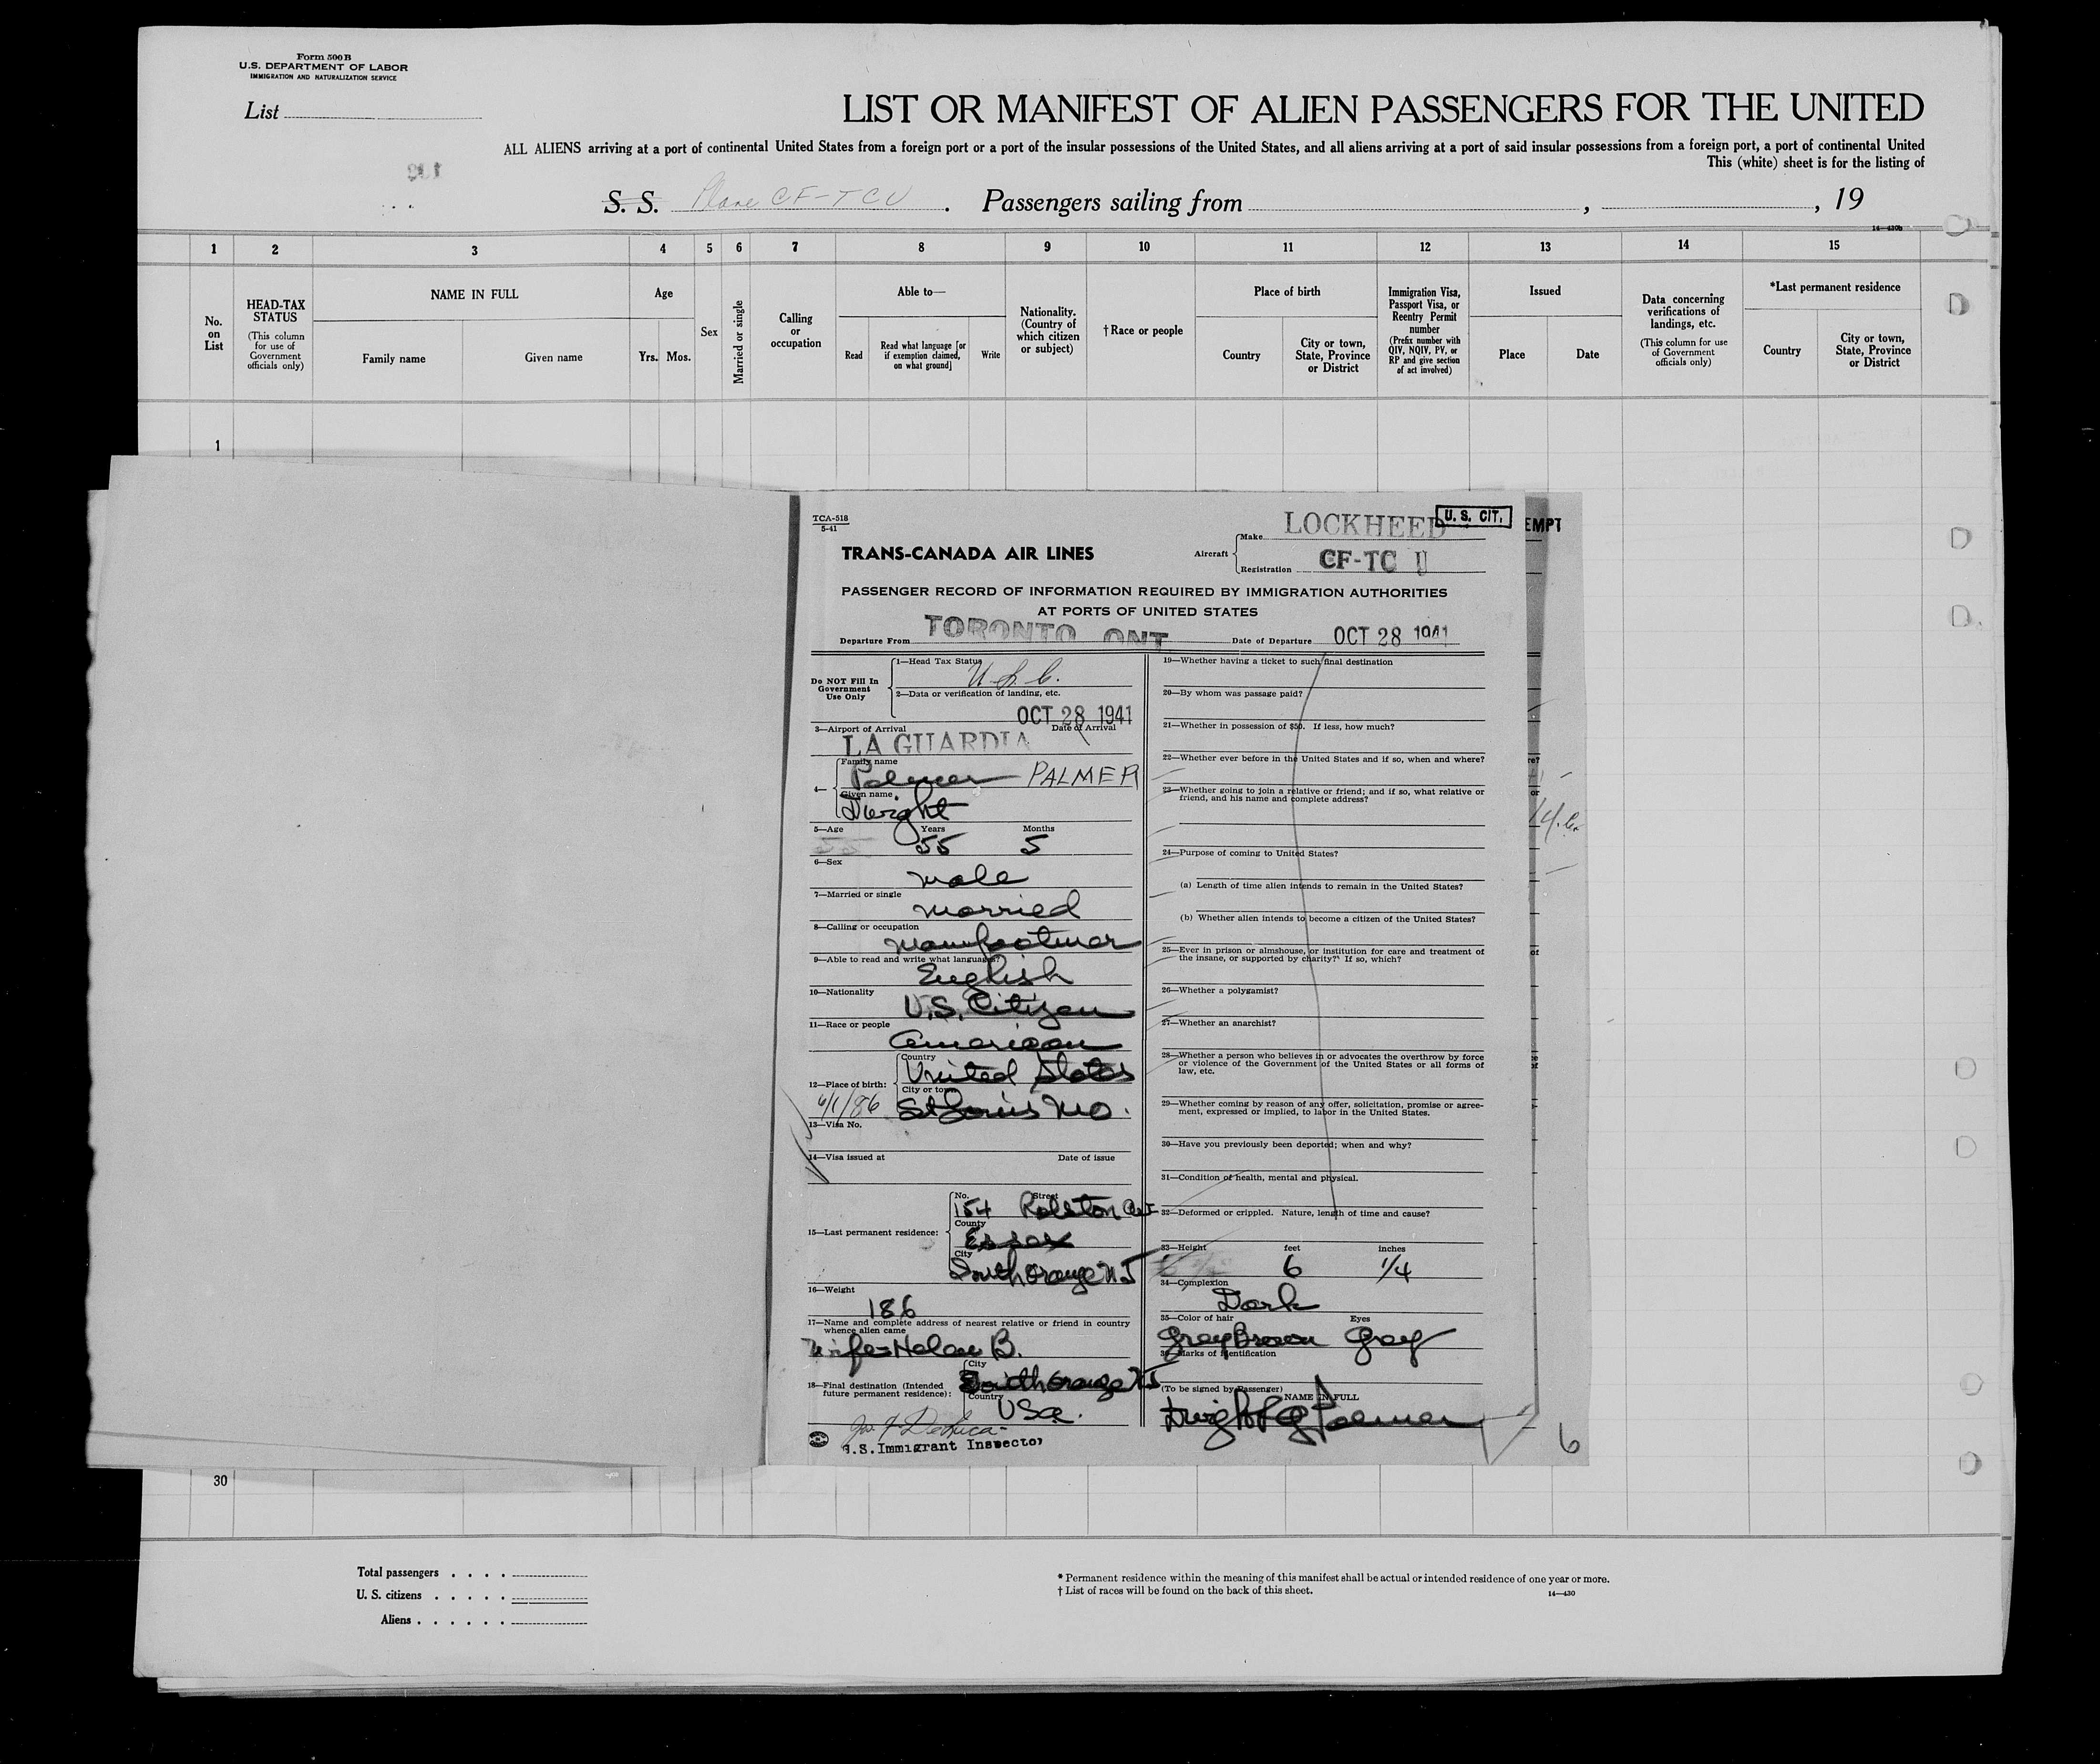 Form 500 B
U.S. DEPARTMENT OF LABOR
IMMIGRATION AND NATURALIZATION SERVICE
List
LIST OR MANIFEST OF ALIEN PASSENGERS FOR THE UNITED
ALL ALIENS arriving at a port of continental United States from a foreign port or a port of the insular possessions of the United States, and all aliens arriving at a port of said insular possessions from a foreign port, a port of continental United
This (white) sheet is for the listing of
S. S. Plane CF-TCU . Passengers sailing from , , 19
14—430b
1 2 3 4 5 6 7 8 9 10 11 12 13 14 15
No. on List
HEAD-TAX STATUS
(This column for use of Government officials only)
NAME IN FULL
Family name
Given name
Age
Yrs. Mos.
Sex
Married or single
Calling or occupation
Able to—
Read
Read what language [or if exemption claimed, on what ground]
Write
Nationality. (Country of which citizen or subject)
†Race or people
Place of birth
Country
City or town, State, Province or District
Immigration Visa, Passport Visa, or Reentry Permit number
(Prefix number with QIV, NQIV, PV, or RP and give section of act involved)
Issued
Place
Date
Data concerning verifications of landings, etc.
(This column for use of Government officials only)
*Last permanent residence
Country
City or town, State, Province or District
1
TCA-518
5-41
TRANS-CANADA AIR LINES
Aircraft
Make LOCKHEED
U. S. CIT.
EMPT
Registration CF-TC U
PASSENGER RECORD OF INFORMATION REQUIRED BY IMMIGRATION AUTHORITIES
AT PORTS OF UNITED STATES
Departure From TORONTO ONT Date of Departure OCT 28 1941
Do NOT Fill In Government Use Only
1—Head Tax Status
U.S.C.
2—Data or verification of landing, etc.
OCT 28 1941
3—Airport of Arrival Date of Arrival
LA GUARDIA
4—
Family name
Palmer PALMER
Given name
Dwight
5—Age Years Months
55 55 5
6—Sex
male
7—Married or single
married
8—Calling or occupation
manufacturer
9—Able to read and write what language?
English
10—Nationality
U.S. Citizen
11—Race or people
American
12—Place of birth:
Country
United States
City or town
6/1/86 St Louis Mo.
13—Visa No.
14—Visa issued at Date of issue
15—Last permanent residence:
No. Street
154 Ralston Ave
County
Essex
City
South Orange NJ
16—Weight
186
17—Name and complete address of nearest relative or friend in country
whence alien came
Wife=Helen B.
18—Final destination (Intended
future permanent residence):
City
South Orange NJ
Country
USa.
U.S. Immigrant Inspector
19—Whether having a ticket to such final destination
20—By whom was passage paid?
21—Whether in possession of $50. If less, how much?
22—Whether ever before in the United States and if so, when and where?
23—Whether going to join a relative or friend; and if so, what relative or
friend, and his name and complete address?
24—Purpose of coming to United States?
(a) Length of time alien intends to remain in the United States?
(b) Whether alien intends to become a citizen of the United States?
25—Ever in prison or almshouse, or institution for care and treatment of
the insane, or supported by charity? If so, which?
26—Whether a polygamist?
27—Whether an anarchist?
28—Whether a person who believes in or advocates the overthrow by force
or violence of the Government of the United States or all forms of
law, etc.
29—Whether coming by reason of any offer, solicitation, promise or agree-
ment, expressed or implied, to labor in the United States.
30—Have you previously been deported; when and why?
31—Condition of health, mental and physical.
32—Deformed or crippled. Nature, length of time and cause?
33—Height feet inches
6 1/4
34—Complexion
Dark
35—Color of hair Eyes
Gray Brown Gray
36—Marks of identification
(To be signed by Passenger)
NAME IN FULL
Dwight G Palmer
6
30
Total passengers
U. S. citizens
Aliens
* Permanent residence within the meaning of this manifest shall be actual or intended residence of one year or more.
† List of races will be found on the back of this sheet.
14—430